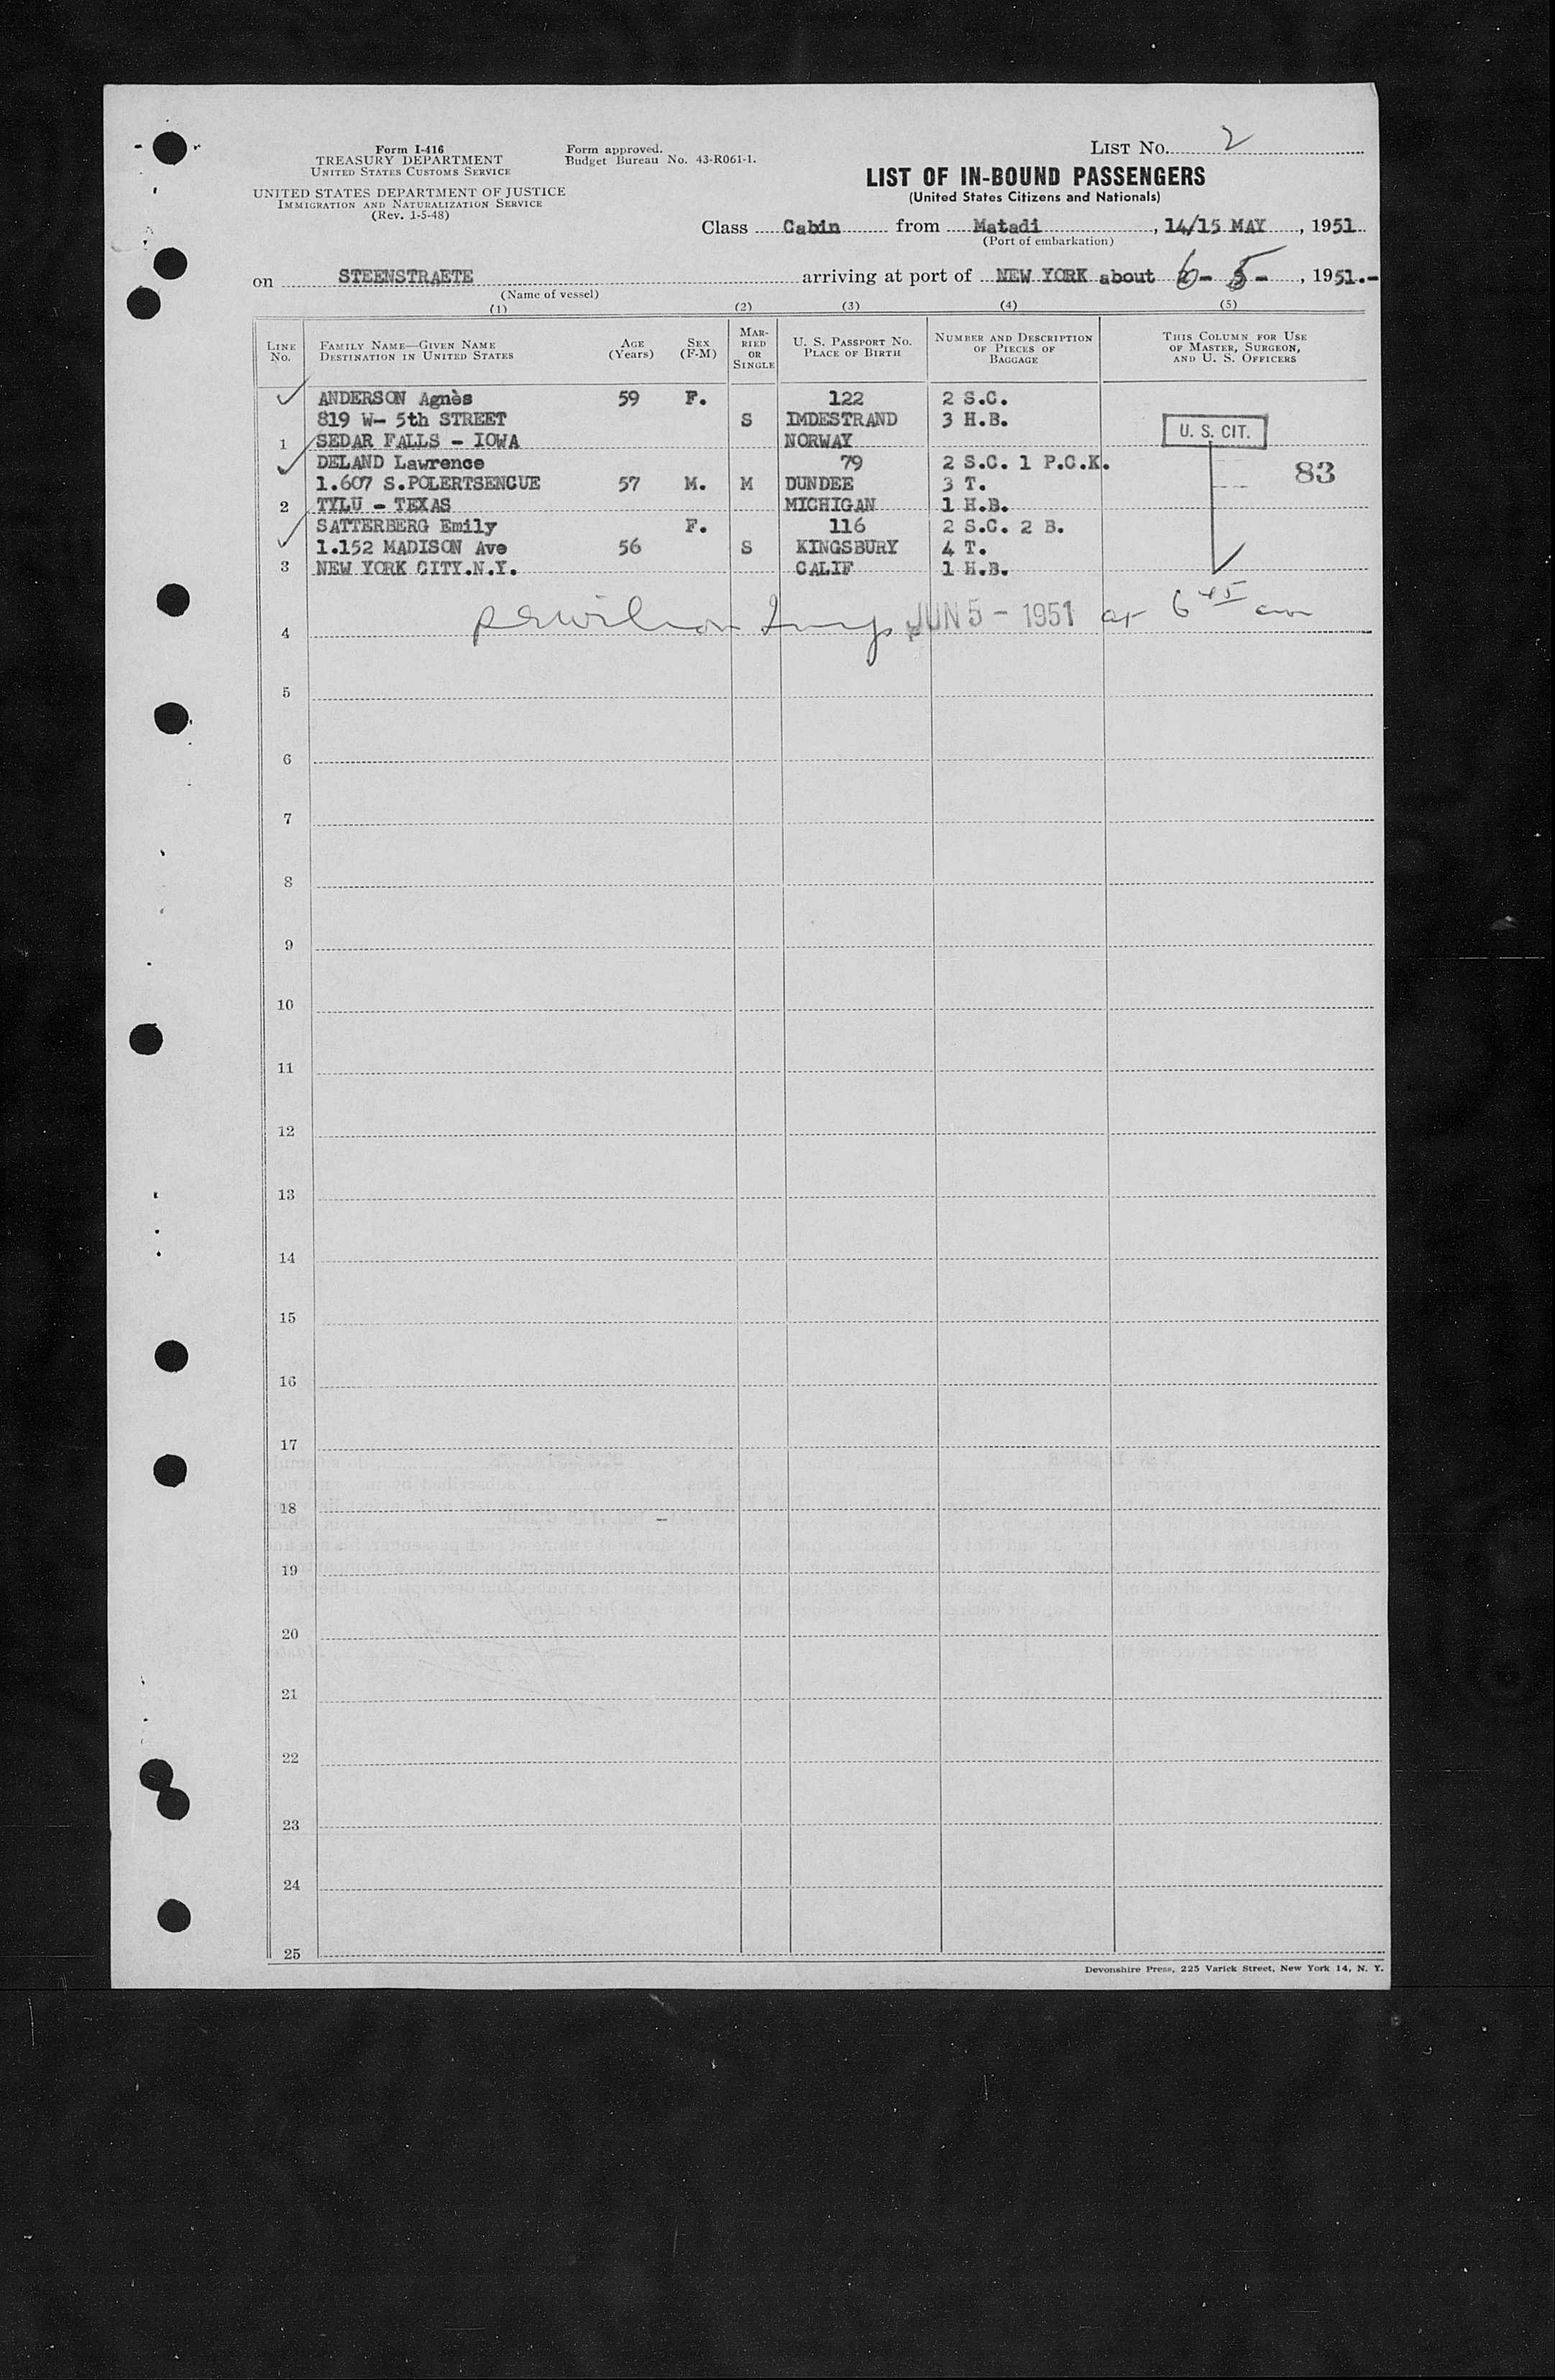 Form I-416
TREASURY DEPARTMENT
UNITED STATES CUSTOMS SERVICE
UNITED STATES DEPARTMENT OF JUSTICE
IMMIGRATION AND NATURALIZATION SERVICE
(Rev. 1-5-48)
Form approved.
Budget Bureau No. 43-R061-1.
LIST NO. 2
LIST OF IN-BOUND PASSENGERS
(United States Citizens and Nationals)
Class Cabin from Matadi, 14/15 MAY, 1951
(Port of embarkation)
on STEENSTRAETE arriving at port of NEW YORK about 6- 5-, 1951.-
(Name of vessel)
(1) (2) (3) (4) (5)
LINE NO.
FAMILY NAME—GIVEN NAME
DESTINATION IN UNITED STATES
AGE (Years)
SEX (F-M)
MARRIED OR SINGLE
U. S. PASSPORT NO.
PLACE OF BIRTH
NUMBER AND DESCRIPTION OF PIECES OF BAGGAGE
THIS COLUMN FOR USE OF MASTER, SURGEON, AND U. S. OFFICERS
ANDERSON Agnès 59 F. 122 2 S.C.
819 W- 5th STREET S IMDESTRAND 3 H.B.
1 SEDAR FALLS - IOWA NORWAY
U. S. CIT.
DELAND Lawrence 79 2 S.C. 1 P.C.K.
83
1.607 S.POLERTSENCUE 57 M. M DUNDEE 3 T.
2 TYLU - TEXAS MICHIGAN 1 H.B.
SATTERBERG Emily F. 116 2 S.C. 2 B.
1.152 MADISON Ave 56 S KINGSBURY 4 T.
3 NEW YORK CITY.N.Y. CALIF 1 H.B.
4 JUN 5 - 1951 at 6 45 am
5
6
7
8
9
10
11
12
13
14
15
16
17
18
19
20
21
22
23
24
25
Devonshire Press, 225 Varick Street, New York 14, N. Y.